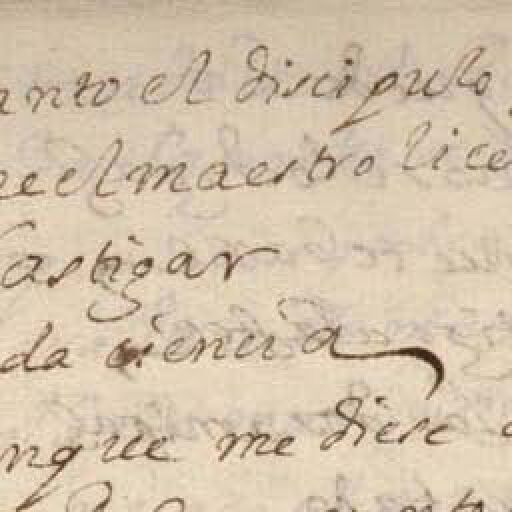 anto el discipulo
que el maestro lice
castigar
da ciencia
unque me diese